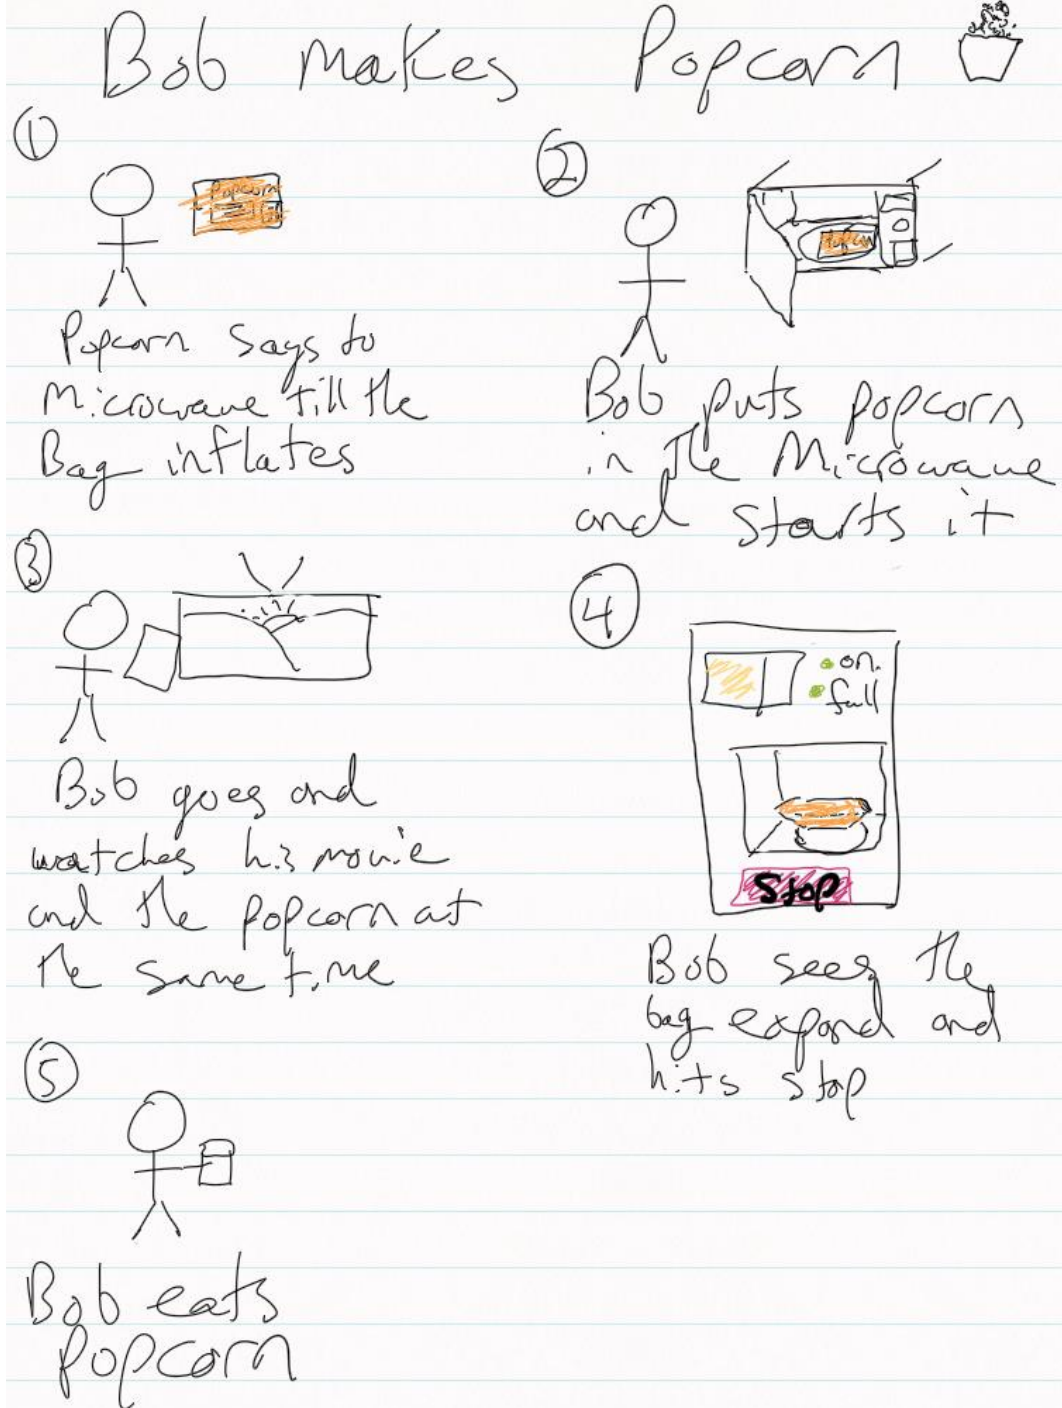 Bob makes Popcorn
①
Popcorn
Popcorn says to
Microwave till the
Bag inflates
②
Popcorn
Bob puts popcorn
in the Microwave
and starts it
③
Bob goes and
watches his movie
and the popcorn at
the same time
④
on.
full
Stop
Bob sees the
bag expand and
hits stop
⑤
Bob eats
Popcorn